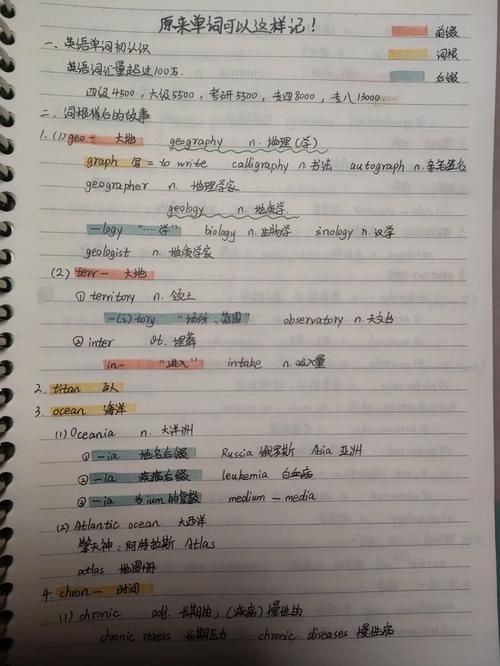 原来单词可以这样记!
前缀
一、英语单词初认识
词根
英语词汇量超过100万.
后缀
四级4500,六级5500,考研5500,专四8000,专八13000.
二、词根背后的故事
1.(1) geo- 大地 geography n. 地理(学)
graph 写 = to write calligraphy n.书法 autograph n.亲笔签名
geographer n. 地理学家
geology n. 地质学.
-logy "…学" biology n.生物学 sinology n.汉学
geologist n. 地质学家
(2) terr- 大地
① territory n. 领土
-(i)tory "场所、范围" observatory n.天文台
② inter vt. 埋葬
in- "进入" intake n.吸入量
2. titan 巨人
3. ocean 海洋
(1) Oceania n. 大洋洲
① -ia 地名后缀 Russia 俄罗斯 Asia 亚洲
② -ia 疾病后缀 leukemia 白血病
③ -ia 为ium的复数 medium — media
(2) Atlantic ocean 大西洋
擎天神:阿特拉斯 Atlas
atlas 地图册
4. chron- 时间
(1) chronic adj. 长期的;(疾病)慢性的
chronic stress 长期压力 chronic diseases 慢性病